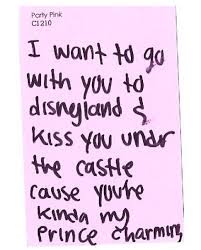 Party Pink
C1210
I want to go
with you to
disneyland &
kiss you under
the castle
cause you're
kinda my
prince charming